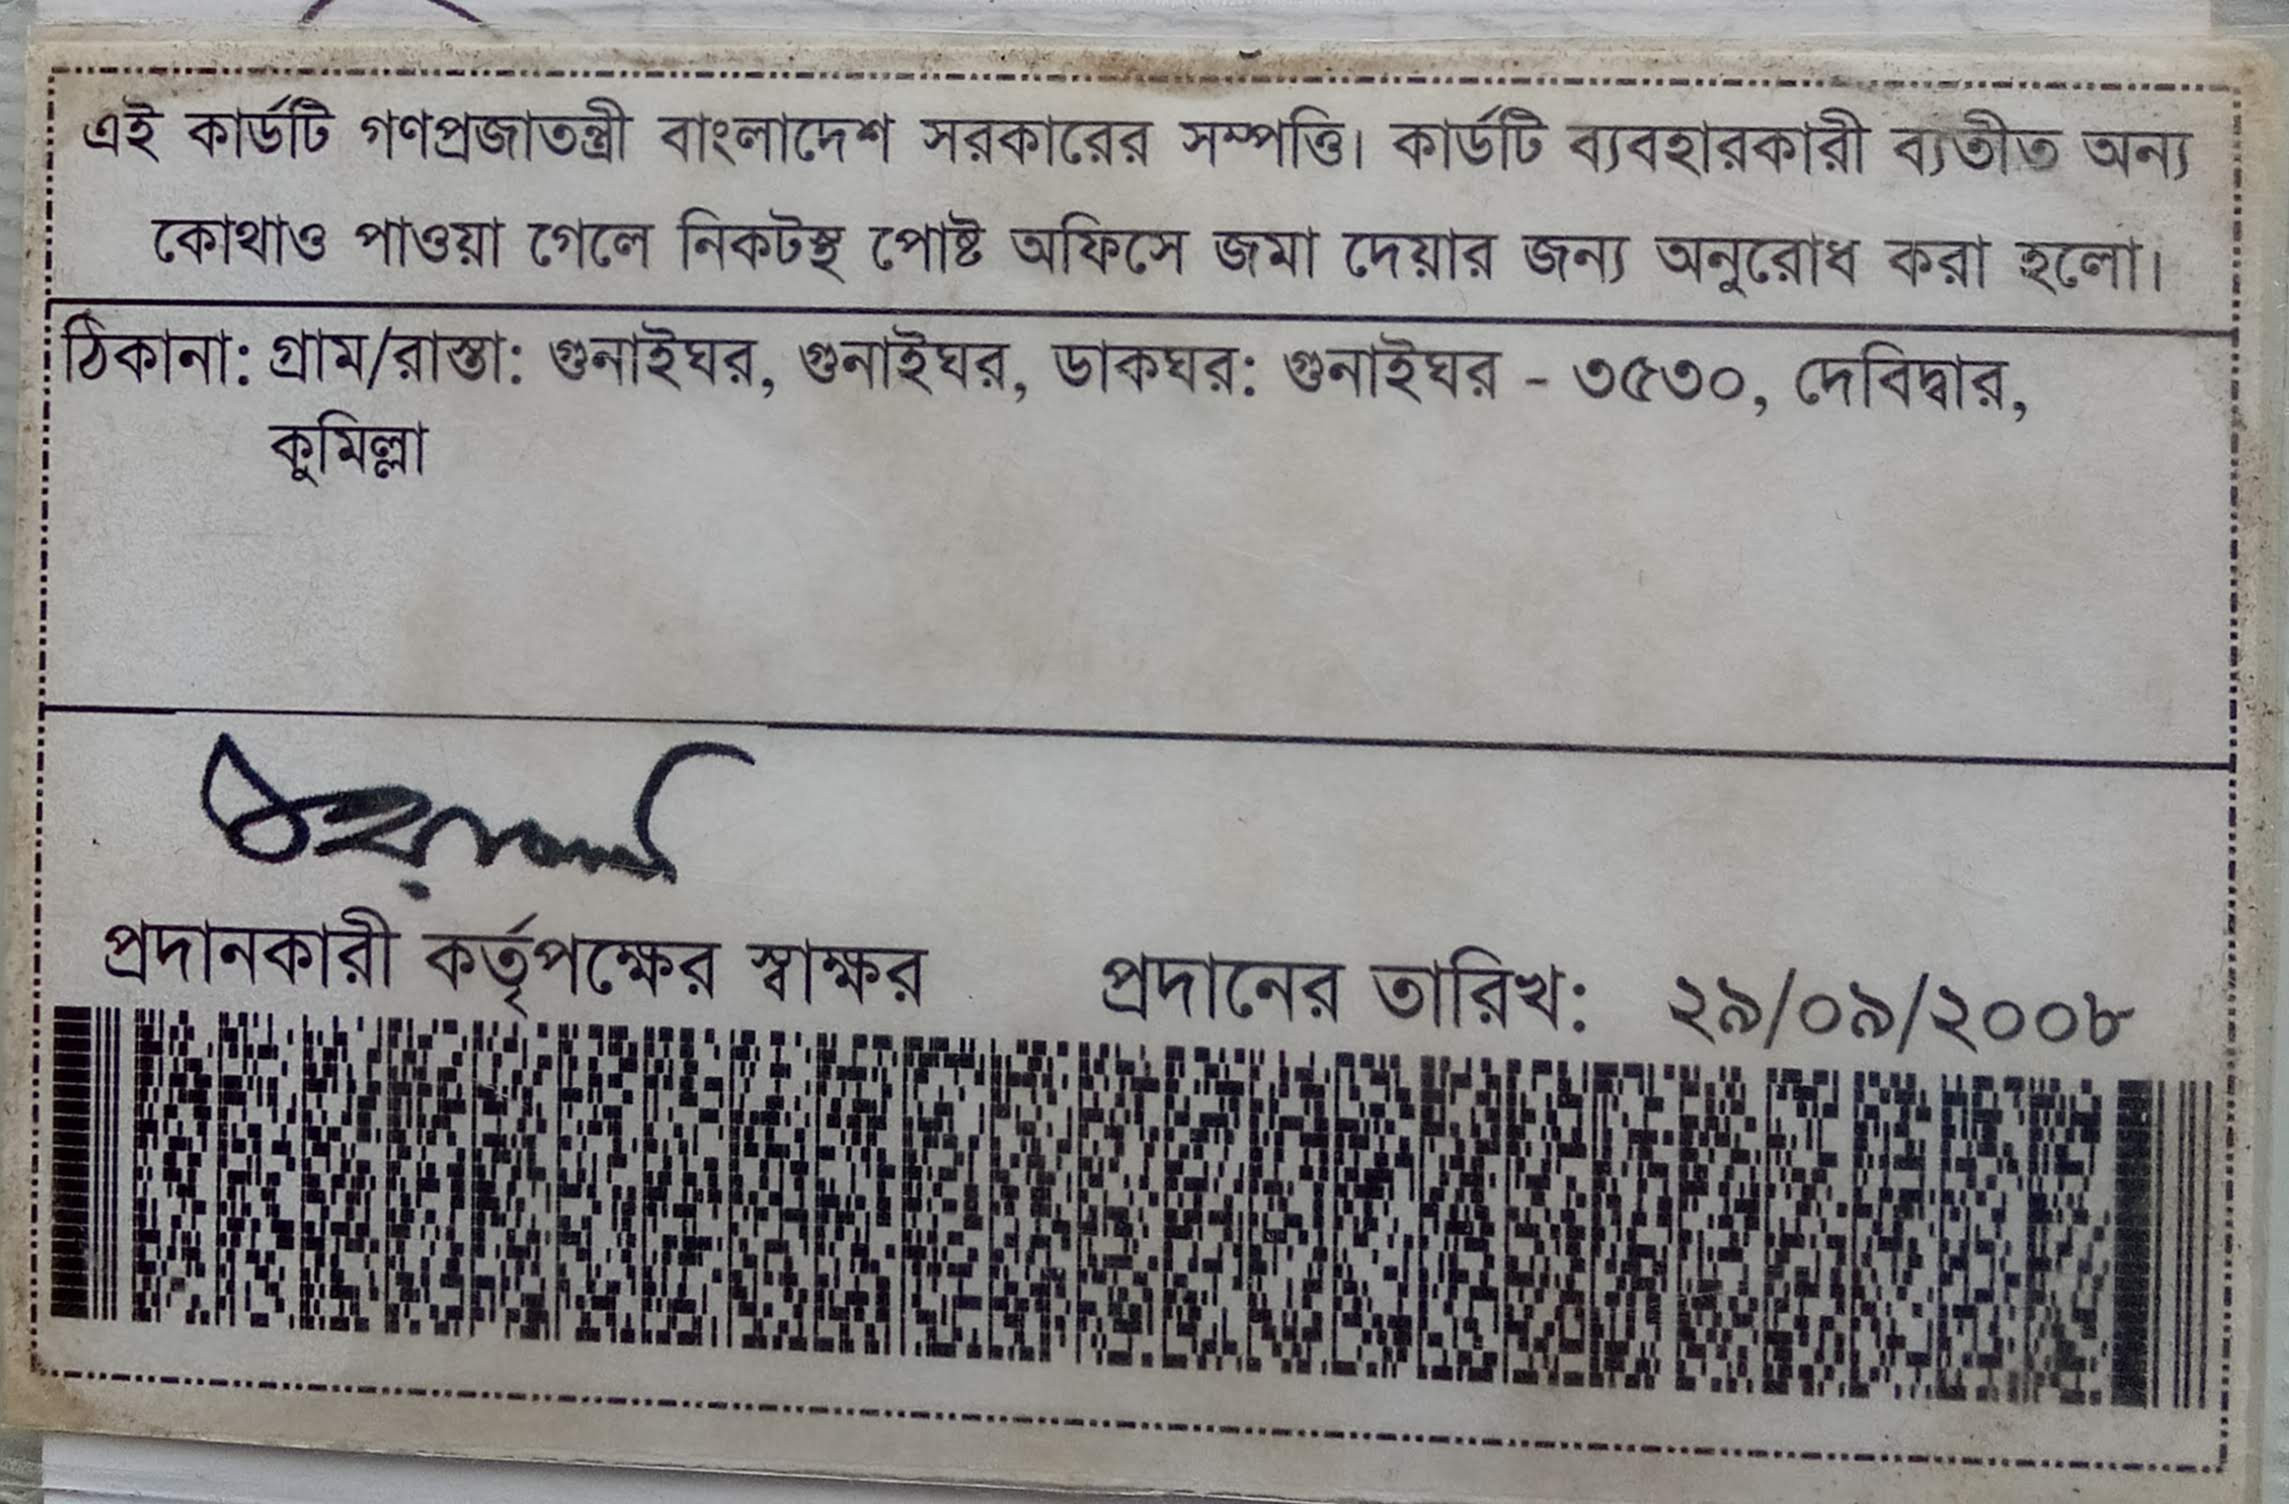 এই কার্ডটি গণপ্রজাতন্ত্রী বাংলাদেশ সরকারের সম্পত্তি। কার্ডটি ব্যবহারকারী ব্যতীত অন্য
কোথাও পাওয়া গেলে নিকটস্থ পোষ্ট অফিসে জমা দেয়ার জন্য অনুরোধ করা হলো।
ঠিকানা: গ্রাম/রাস্তা: গুনাইঘর, গুনাইঘর, ডাকঘর: গুনাইঘর - ৩৫৩০, দেবিদ্বার,
কুমিল্লা
প্রদানকারী কর্তৃপক্ষের স্বাক্ষর প্রদানের তারিখ: ২৯/০৯/২০০৮